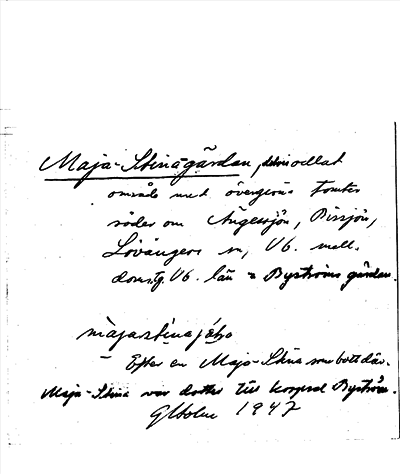 Maja-Stinagårdan, delvis odlat
område med övergivna tomter
söder om Ångessjön, Bissjön,
Lövångers sn, Vb. mell.
doms. Vb. län = Byströms gårdan.
majastinajálo
- Efter en Maja-Stina som bott där.
Maja-Stina var dotter till korpral Byström.
GHolm 1947